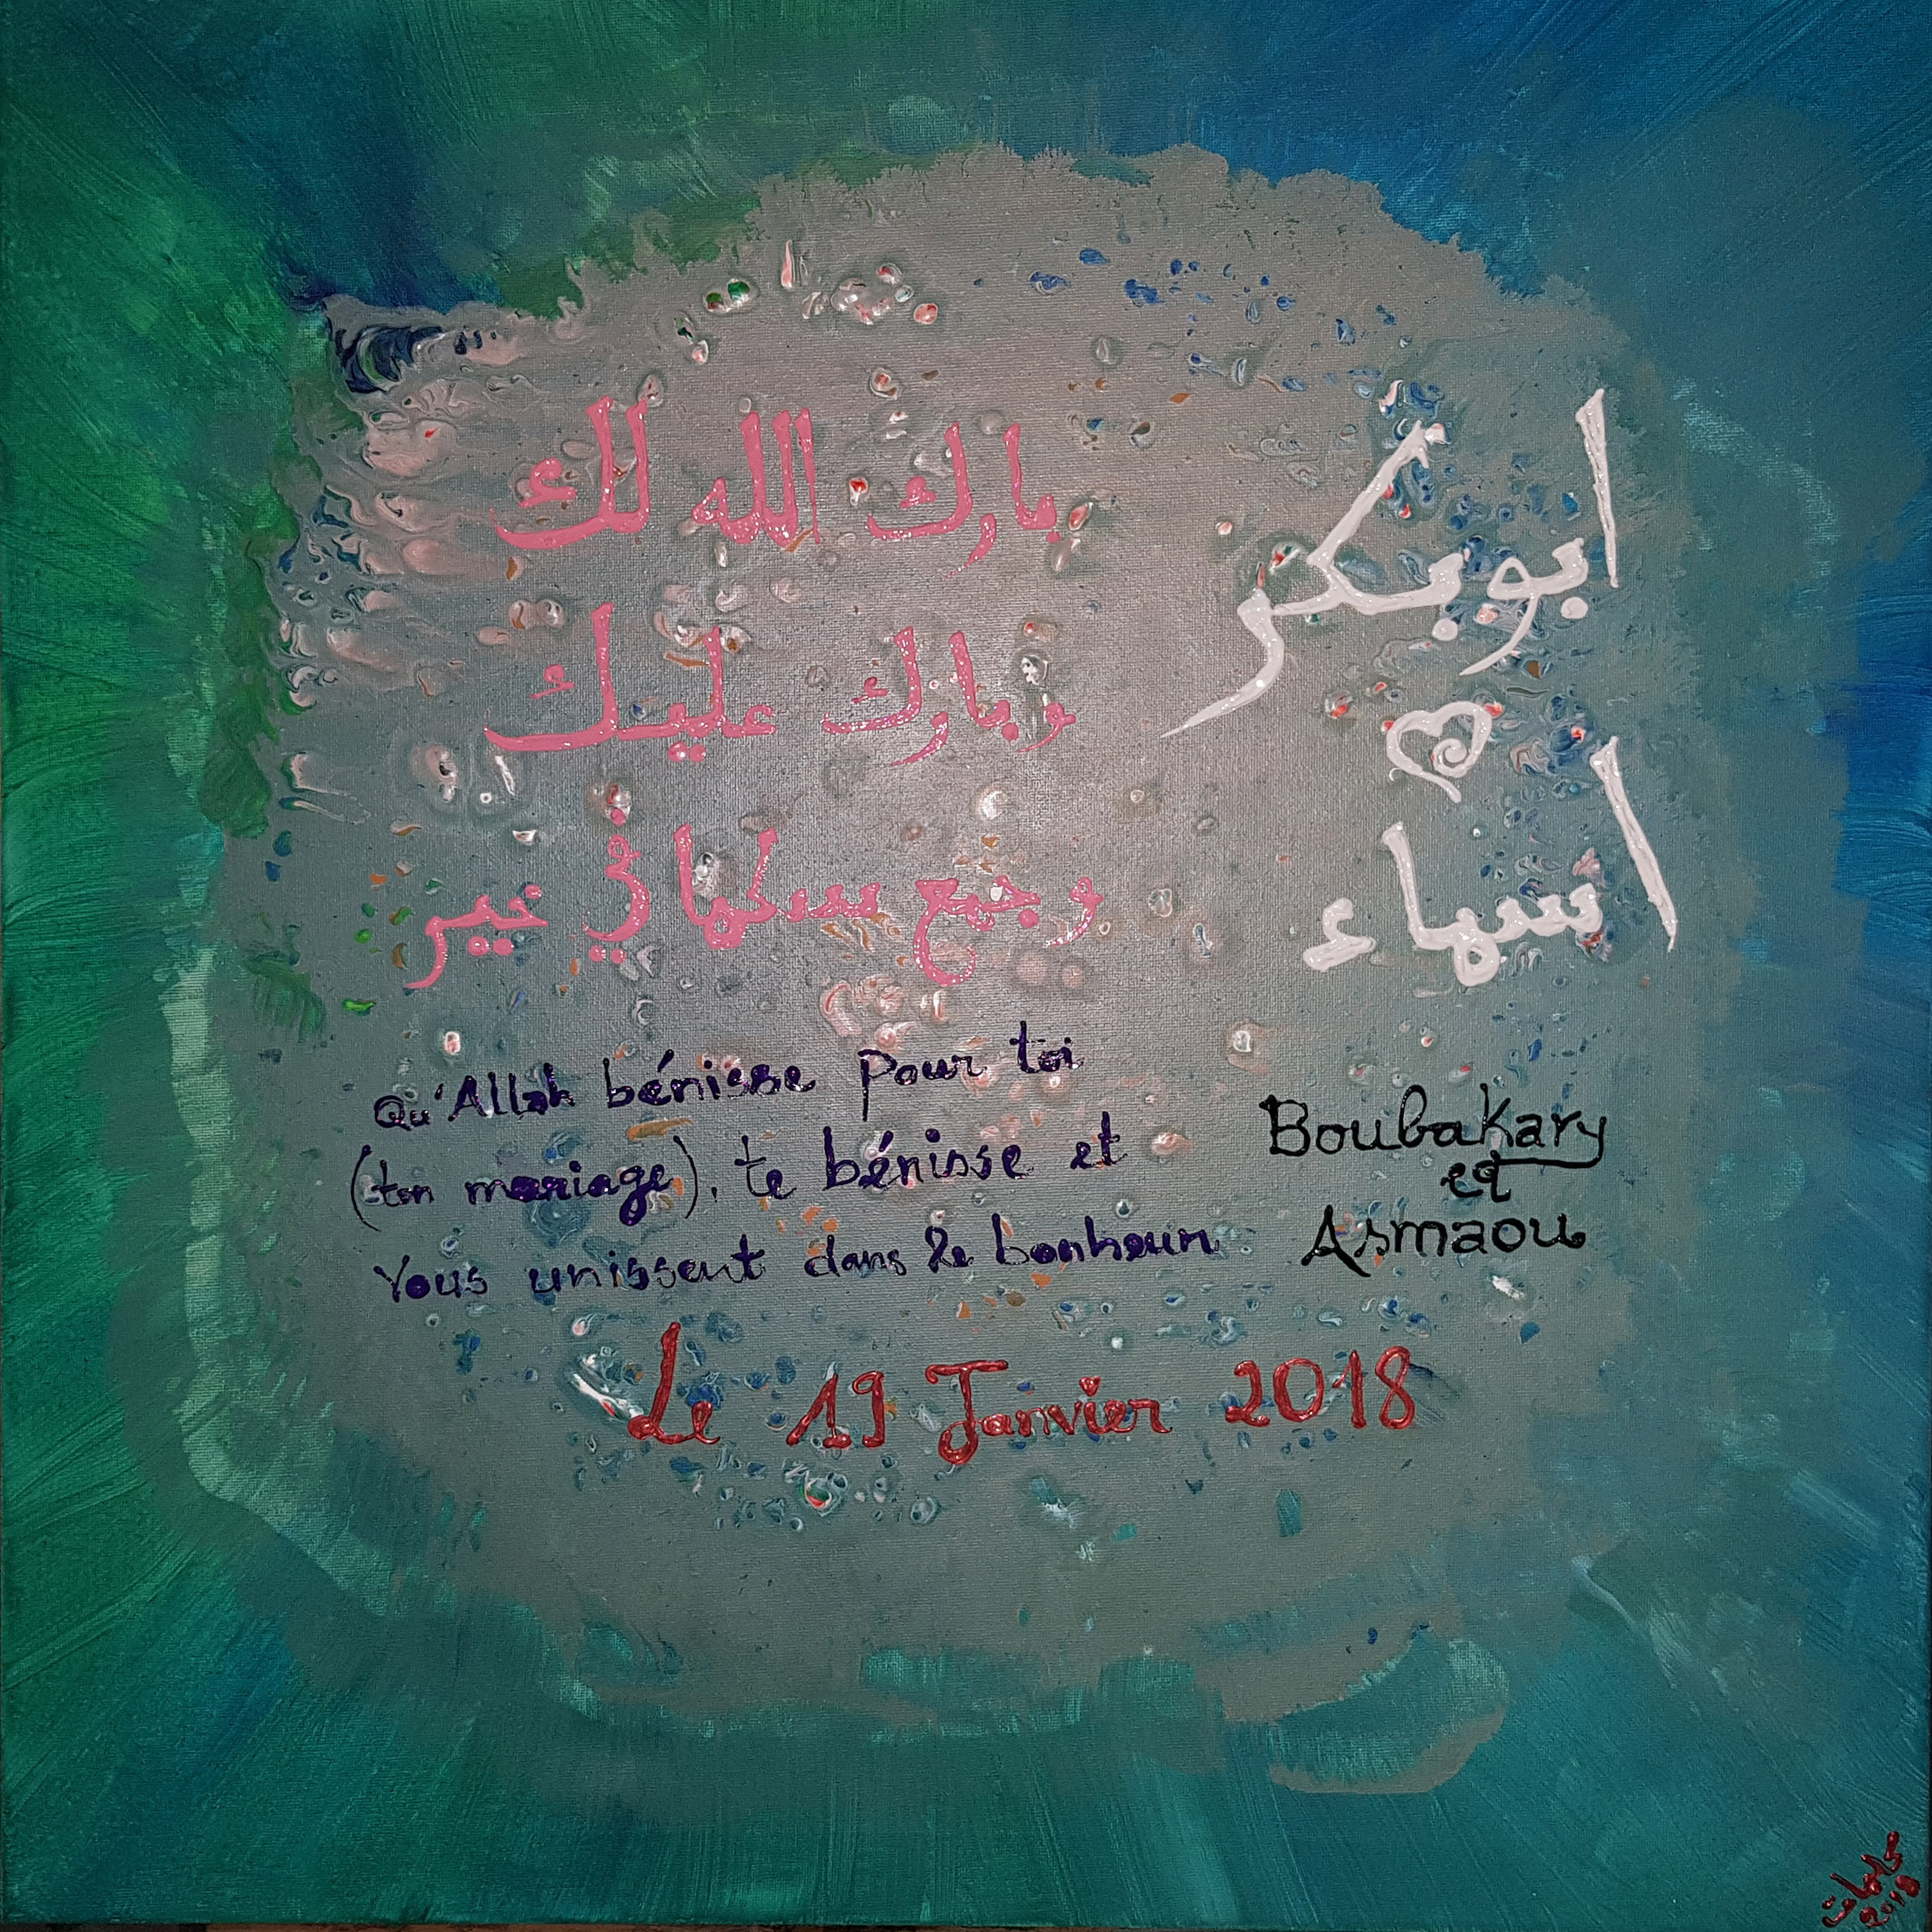 بارك الله لك
وبارك عليك
وجمع بينكما في خير
ابوبكر
اسماء
Qu'Allah bénisse pour toi
(ton mariage), te bénisse et
Vous unissent dans le bonheur
Boubakary
et
Asmaou
Le 19 Janvier 2018
2018